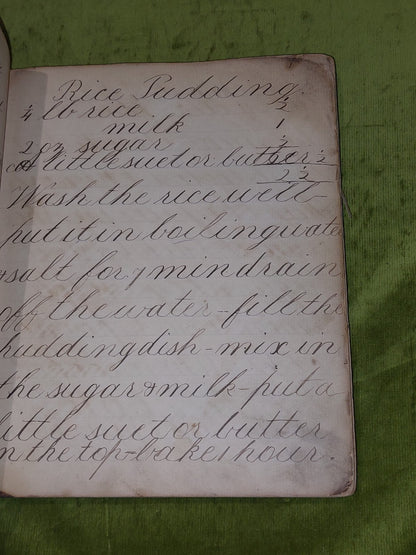 Rice Pudding.
¼ lb rice ½
milk 1
2 oz sugar ½
a little suet or butter ½
2½
Wash the rice well-
put it in boiling water
& salt for 7 min drain
off the water - fill the
pudding dish - mix in
the sugar & milk - put a
little suet or butter
on the top - bake 1 hour.